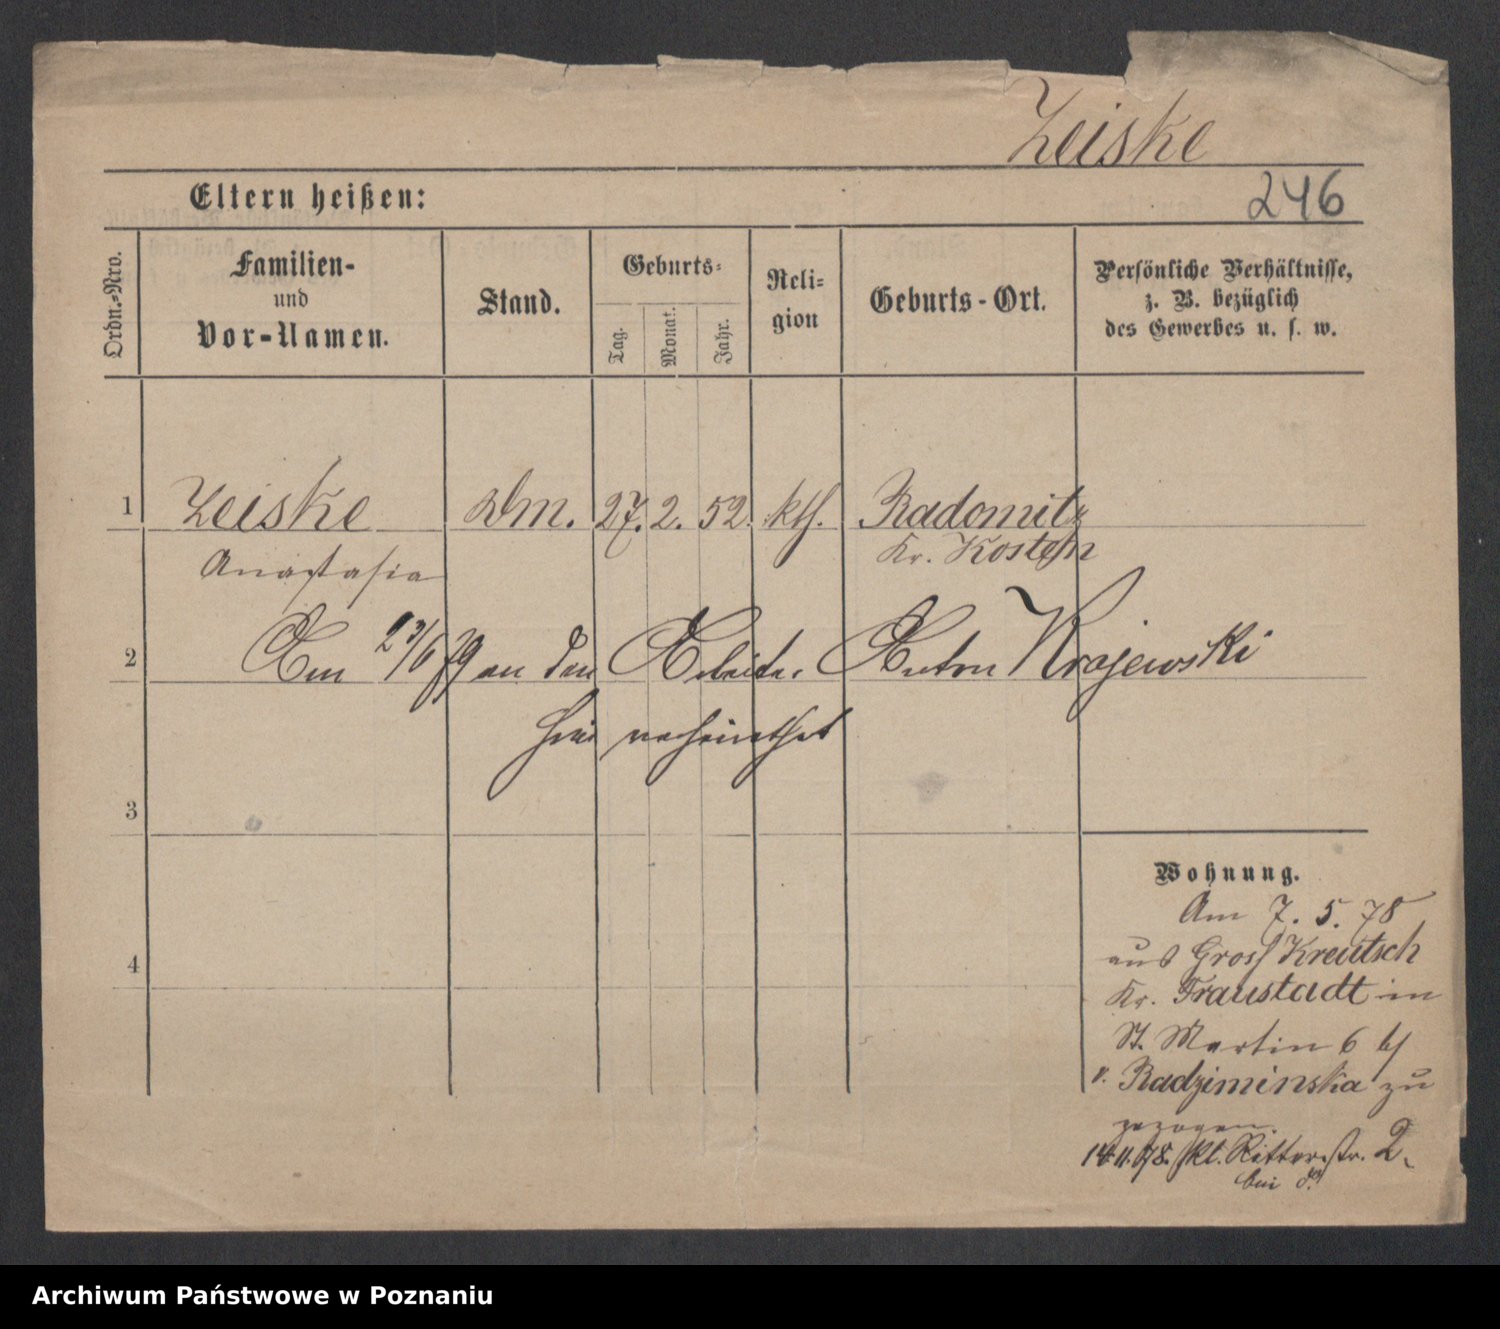 Zeiske
Eltern heißen:
246
Ordn.-Nro.
Familien-
und
Vor-Namen.
Stand.
Geburts-
Tag.
Monat.
Jahr.
Reli-
gion
Geburts-Ort.
Persönliche Verhältnisse,
z. B. bezüglich
des Gewerbes u. s. w.
1 Zeiske Dm. 27. 2. 52. kth. Radomitz
Anastasia Kr. Kosten
2 Am 23/6 79 an den Arbeiter Anton Krajewski
hier verheirathet
3
4
Wohnung.
Am 7. 5. 78
aus Gross Kreutsch
Kr. Fraustadt in
St. Martin 6 b/
v. Radziminska zu
gezogen.
14.11.78. kl. Ritterstr. 2.
bei ds.
Archiwum Państwowe w Poznaniu